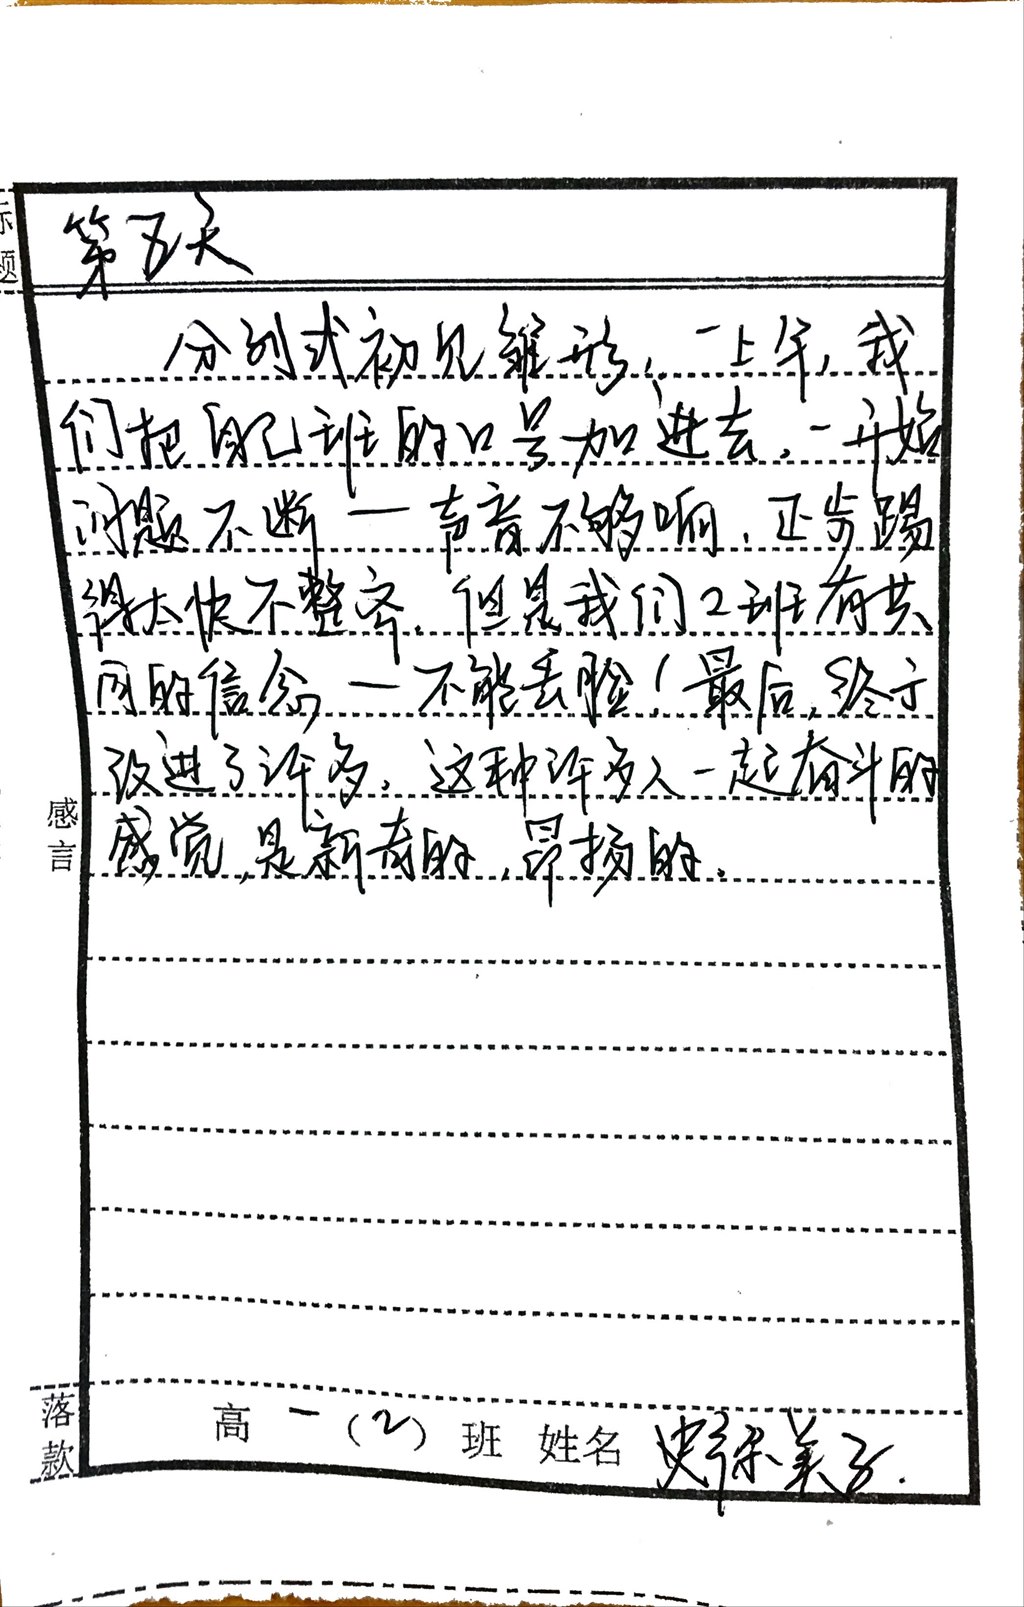 标题
第五天
分列式初见雏形，一上午，我
们把自己班的口号加进去。一开始
问题不断一声音不够响，正步踢
得太快不整齐。但是我们2班有共
同的信念一不能丢脸！最后，终于
改进了许多。这种许多人一起奋斗的
感觉，是新奇的，昂扬的。
感言
落款
高一（2）班 姓名 史美子.